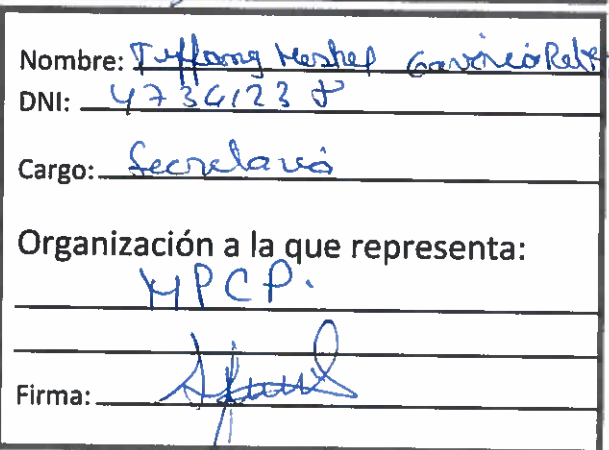 Nombre: Tiffany
DNI: 47361238
Cargo: Secretaria
Organización a la que representa:
MPCP.
Firma: